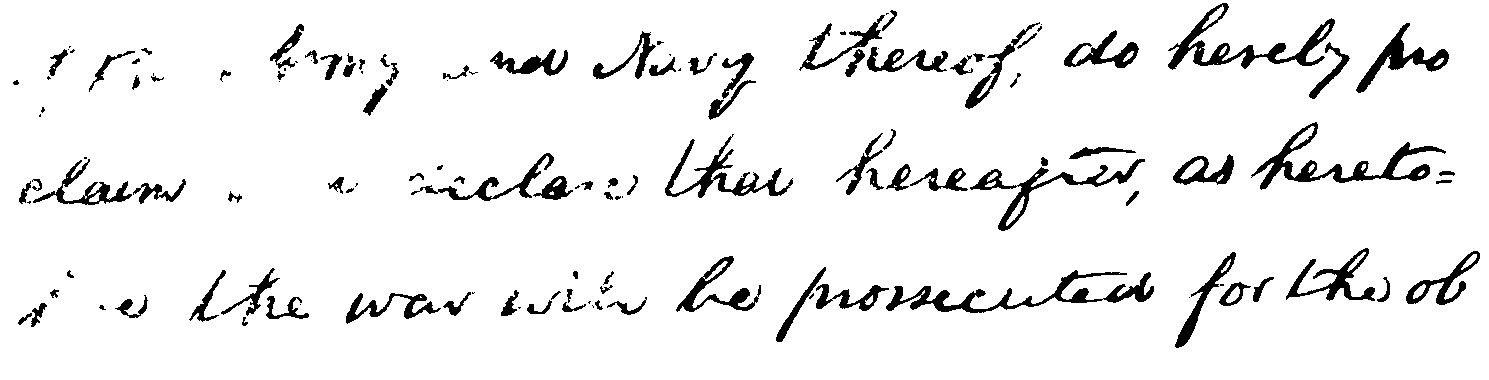 of the Army and Navy thereof, do hereby pro
claim and declare that hereafter, as hereto=
fore the war will be prossecuted for the ob